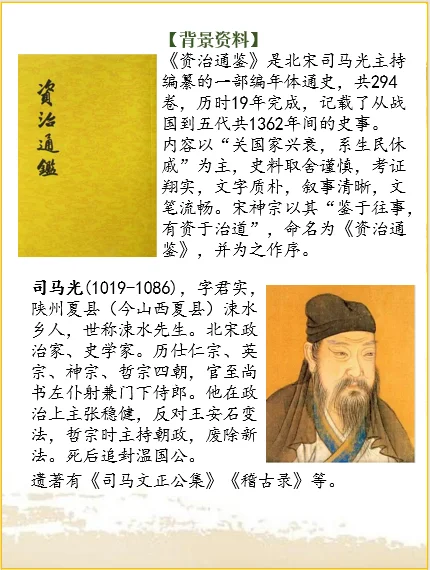 【背景资料】
資治通鑑
《资治通鉴》是北宋司马光主持
编纂的一部编年体通史，共294
卷，历时19年完成，记载了从战
国到五代共1362年间的史事。
内容以“关国家兴衰，系生民休
戚”为主，史料取舍谨慎，考证
翔实，文字质朴，叙事清晰，文
笔流畅。宋神宗以其“鉴于往事，
有资于治道”，命名为《资治通
鉴》，并为之作序。
司马光(1019-1086)，字君实，
陕州夏县（今山西夏县）涑水
乡人，世称涑水先生。北宋政
治家、史学家。历仕仁宗、英
宗、神宗、哲宗四朝，官至尚
书左仆射兼门下侍郎。他在政
治上主张稳健，反对王安石变
法，哲宗时主持朝政，废除新
法。死后追封温国公。
遗著有《司马文正公集》《稽古录》等。